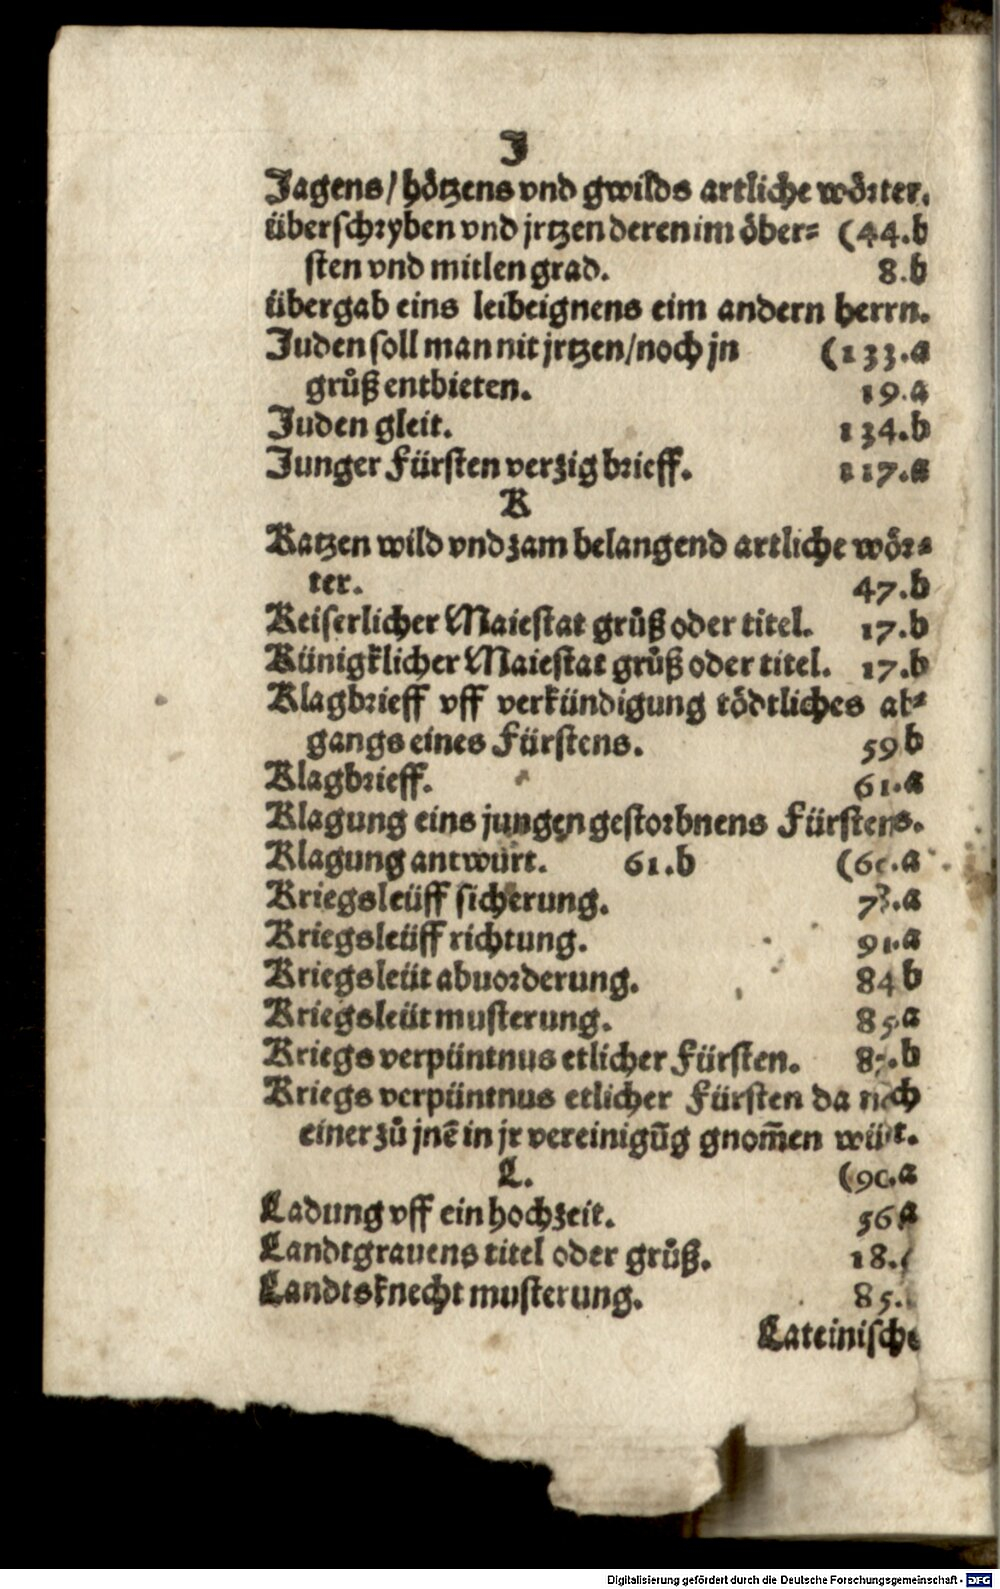 J
Jagens/hötzens vnd gwilds artliche wörter.
überschryben vnd jrtzen deren im öber= (44.b
sten vnd mitlen grad. 8.b
übergab eins leibeignens eim andern herrn.
Juden soll man nit jrtzen/noch jn (133.a
grůß entbieten. 19.a
Juden gleit. 134.b
Junger Fürsten verzig brieff. 117.a
K
Katzen wild vnd zam belangend artliche wör=
ter. 47.b
Keiserlicher Maiestat grůß oder titel. 17.b
Künigklicher Maiestat grůß oder titel. 17.b
Klagbrieff vff verkündigung tödtliches ab=
gangs eines Fürstens. 59 b
Klagbrieff. 61.a
Klagung eins jungen gestorbnens Fürstens.
Klagung antwurt. 61.b (60.a
Kriegsleüff sicherung. 78.a
Kriegsleüff richtung. 91.a
Kriegsleüt abuorderung. 84 b
Kriegsleüt musterung. 85.a
Kriegs verpüntnus etlicher Fürsten. .b
Kriegs verpüntnus etlicher Fürsten da noch
einer zů jnē in jr vereinigūg gnom̄en würt.
L. (90.a
Ladung vff ein hochzeit. 56 a
Landtgrauens titel oder grůß. 18.
Landtsknecht musterung. 85.
Lateinische
Digitalisierung gefördert durch die Deutsche Forschungsgemeinschaft - DFG